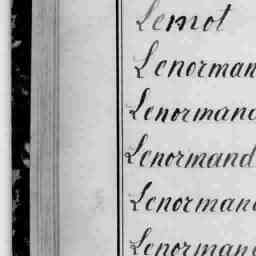 Lemot
Lenorman
Lenormand
Lenormand
Lenormand
Lenormand